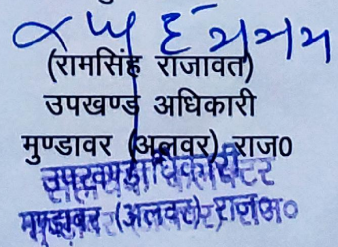 (रामसिंह राजावत)
उपखण्ड अधिकारी
मुण्डावर (अलवर) राज0
उपखण्डाधिकारी
मुण्डावर (अलवर) राज०